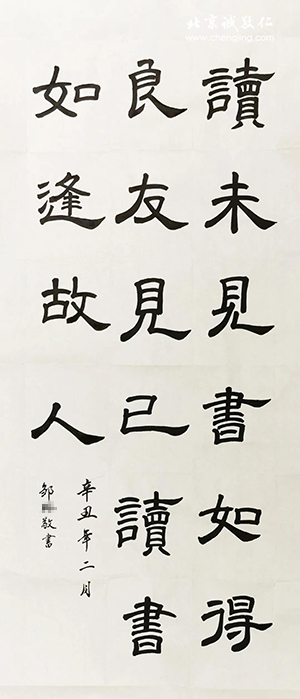 北京诚敬仁
www.chengjing.com
讀未見書如得
良友見已讀書
如逢故人
辛丑年二月
邹 敬書